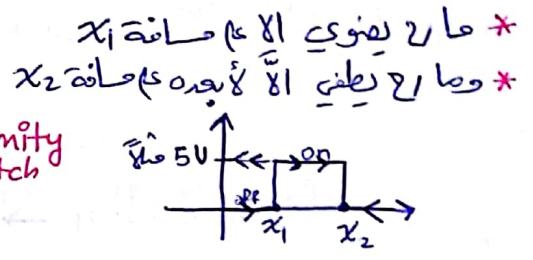 * ما رح يضوي إلا ع مسافة x₁
* وما رح يطفي إلّا لأبعده ع مسافة x₂
mity
tch
مثلاً 5V
on
off
x₁ x₂